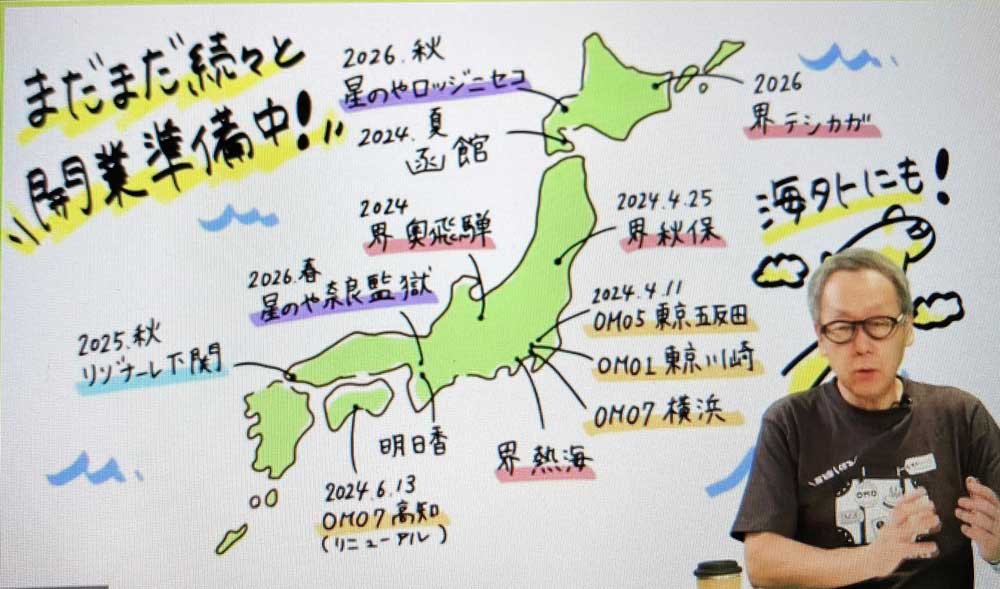 まだまだ続々と
開業準備中!
2026.秋
星のやロッジニセコ
2024.夏
函館
2026
界 テシカガ
海外にも!
2024
界 奥飛騨
2024.4.25
界 秋保
2026.春
星のや奈良監獄
2024.4.11
OMO5 東京五反田
2025.秋
リゾナーレ下関
OMO1 東京川崎
OMO7 横浜
明日香
界 熱海
2024.6.13
OMO7 高知
(リニューアル)
OMO